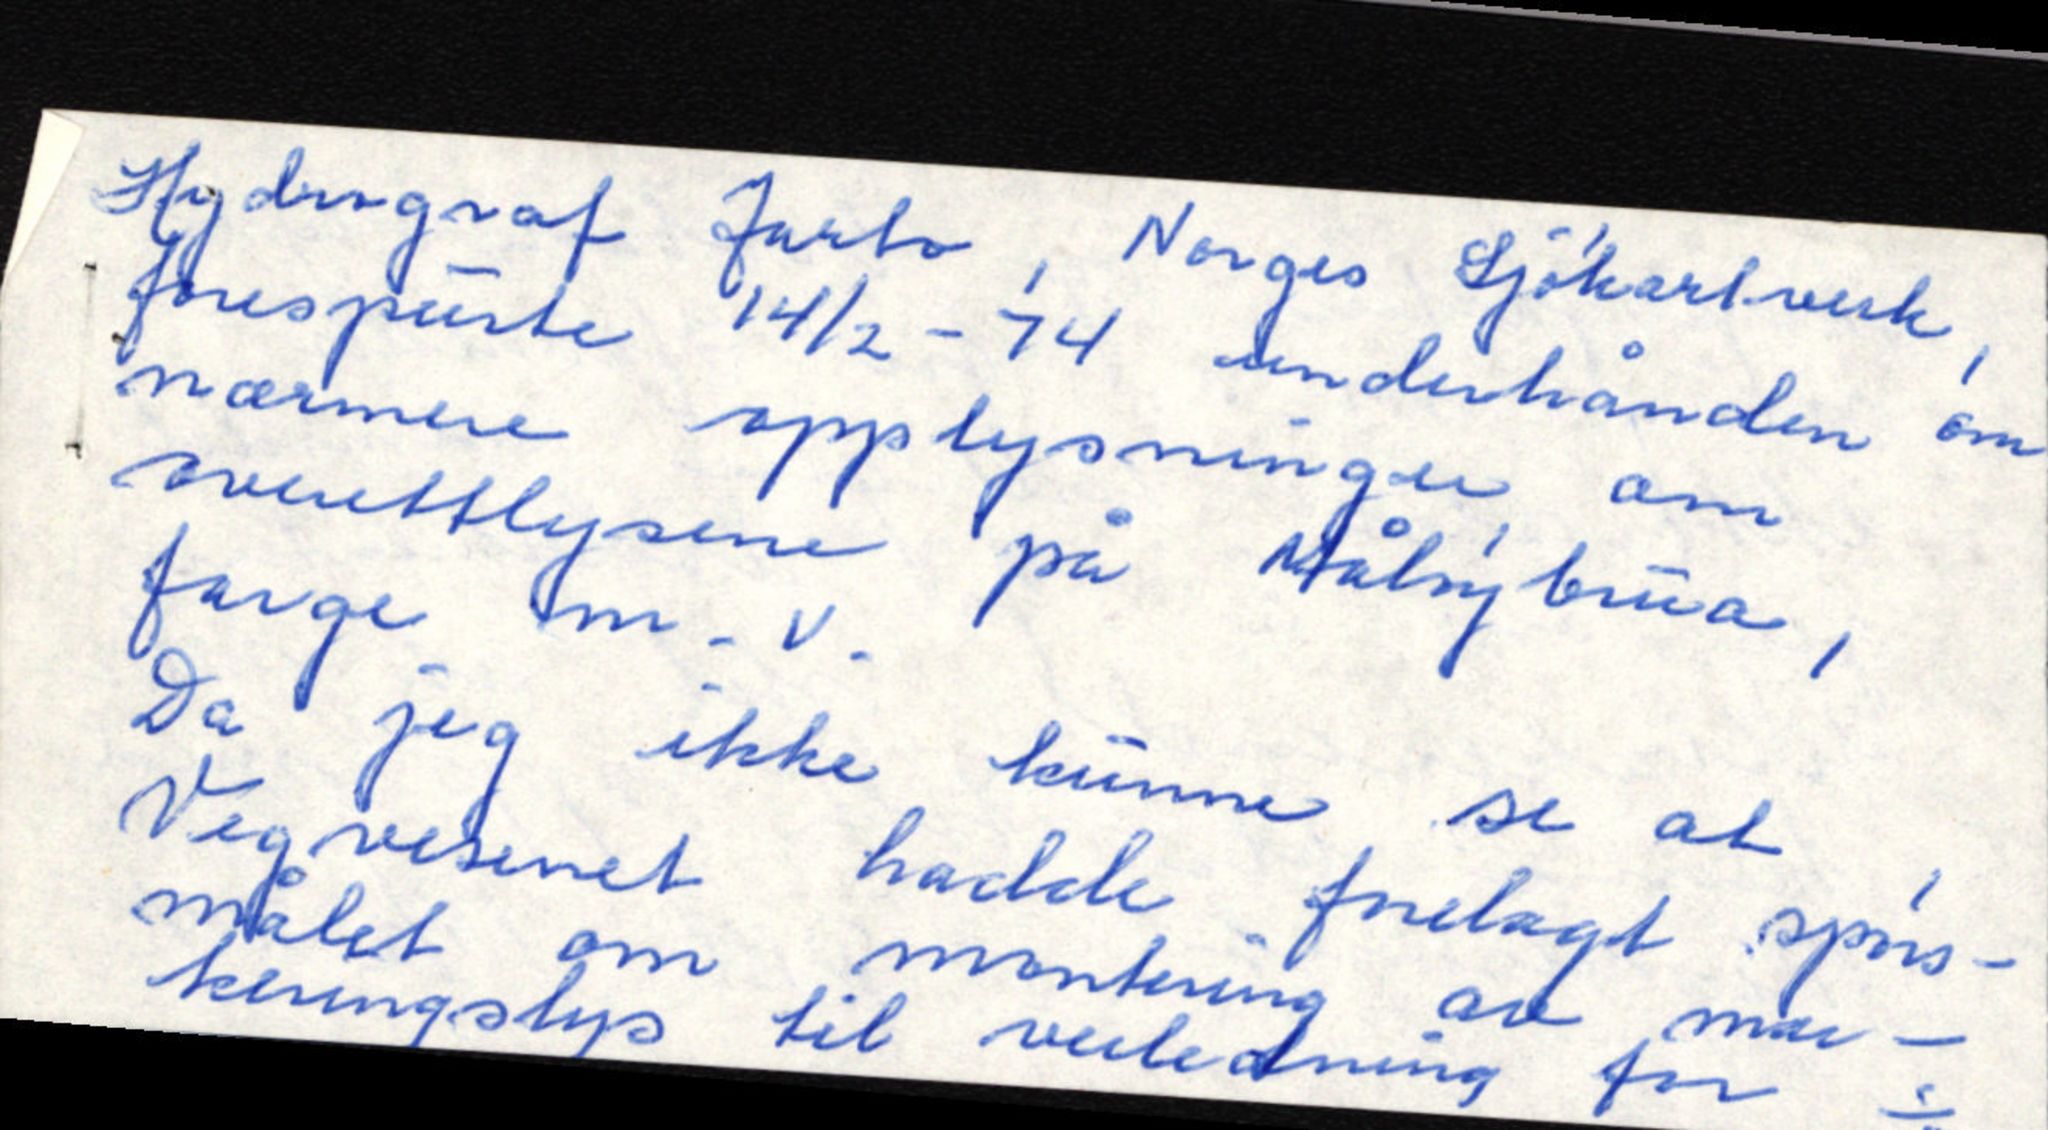 Hydrograf Jarbo, Norges Sjökartverk,
forespurte 14/2-74 underhånden om
nærmere opplysninger om
overettlysene på Måløybrua,
farge m.v.
Da jeg ikke kunne se at
Vegvesenet hadde forelagt spörs-
målet om montering av mar-
keringslys til veiledning for